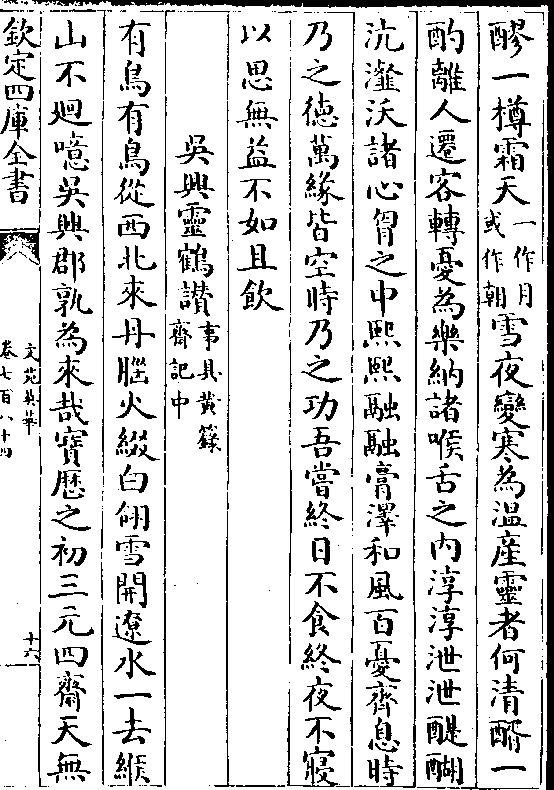 醪一樽霜天一作月或作朝雪夜變寒為溫産靈者何清醑一
酌離人遷客轉憂為樂納諸喉舌之内淳淳泄泄醍醐
沆瀣沃諸心胷之中熙熙融融膏澤和風百憂齊息時
乃之德萬緣皆空時乃之功吾嘗終日不食終夜不寢
以思無益不如且飲
吳興靈鶴讃事具黄籙齋記中
有鳥有鳥從西北來丹腦火綴白翎雪開遼水一去緱
山不廻噫吳興郡孰為來哉寶歷之初三元四齋天無
欽定四庫全書
文苑英華
卷七百八十四
十六